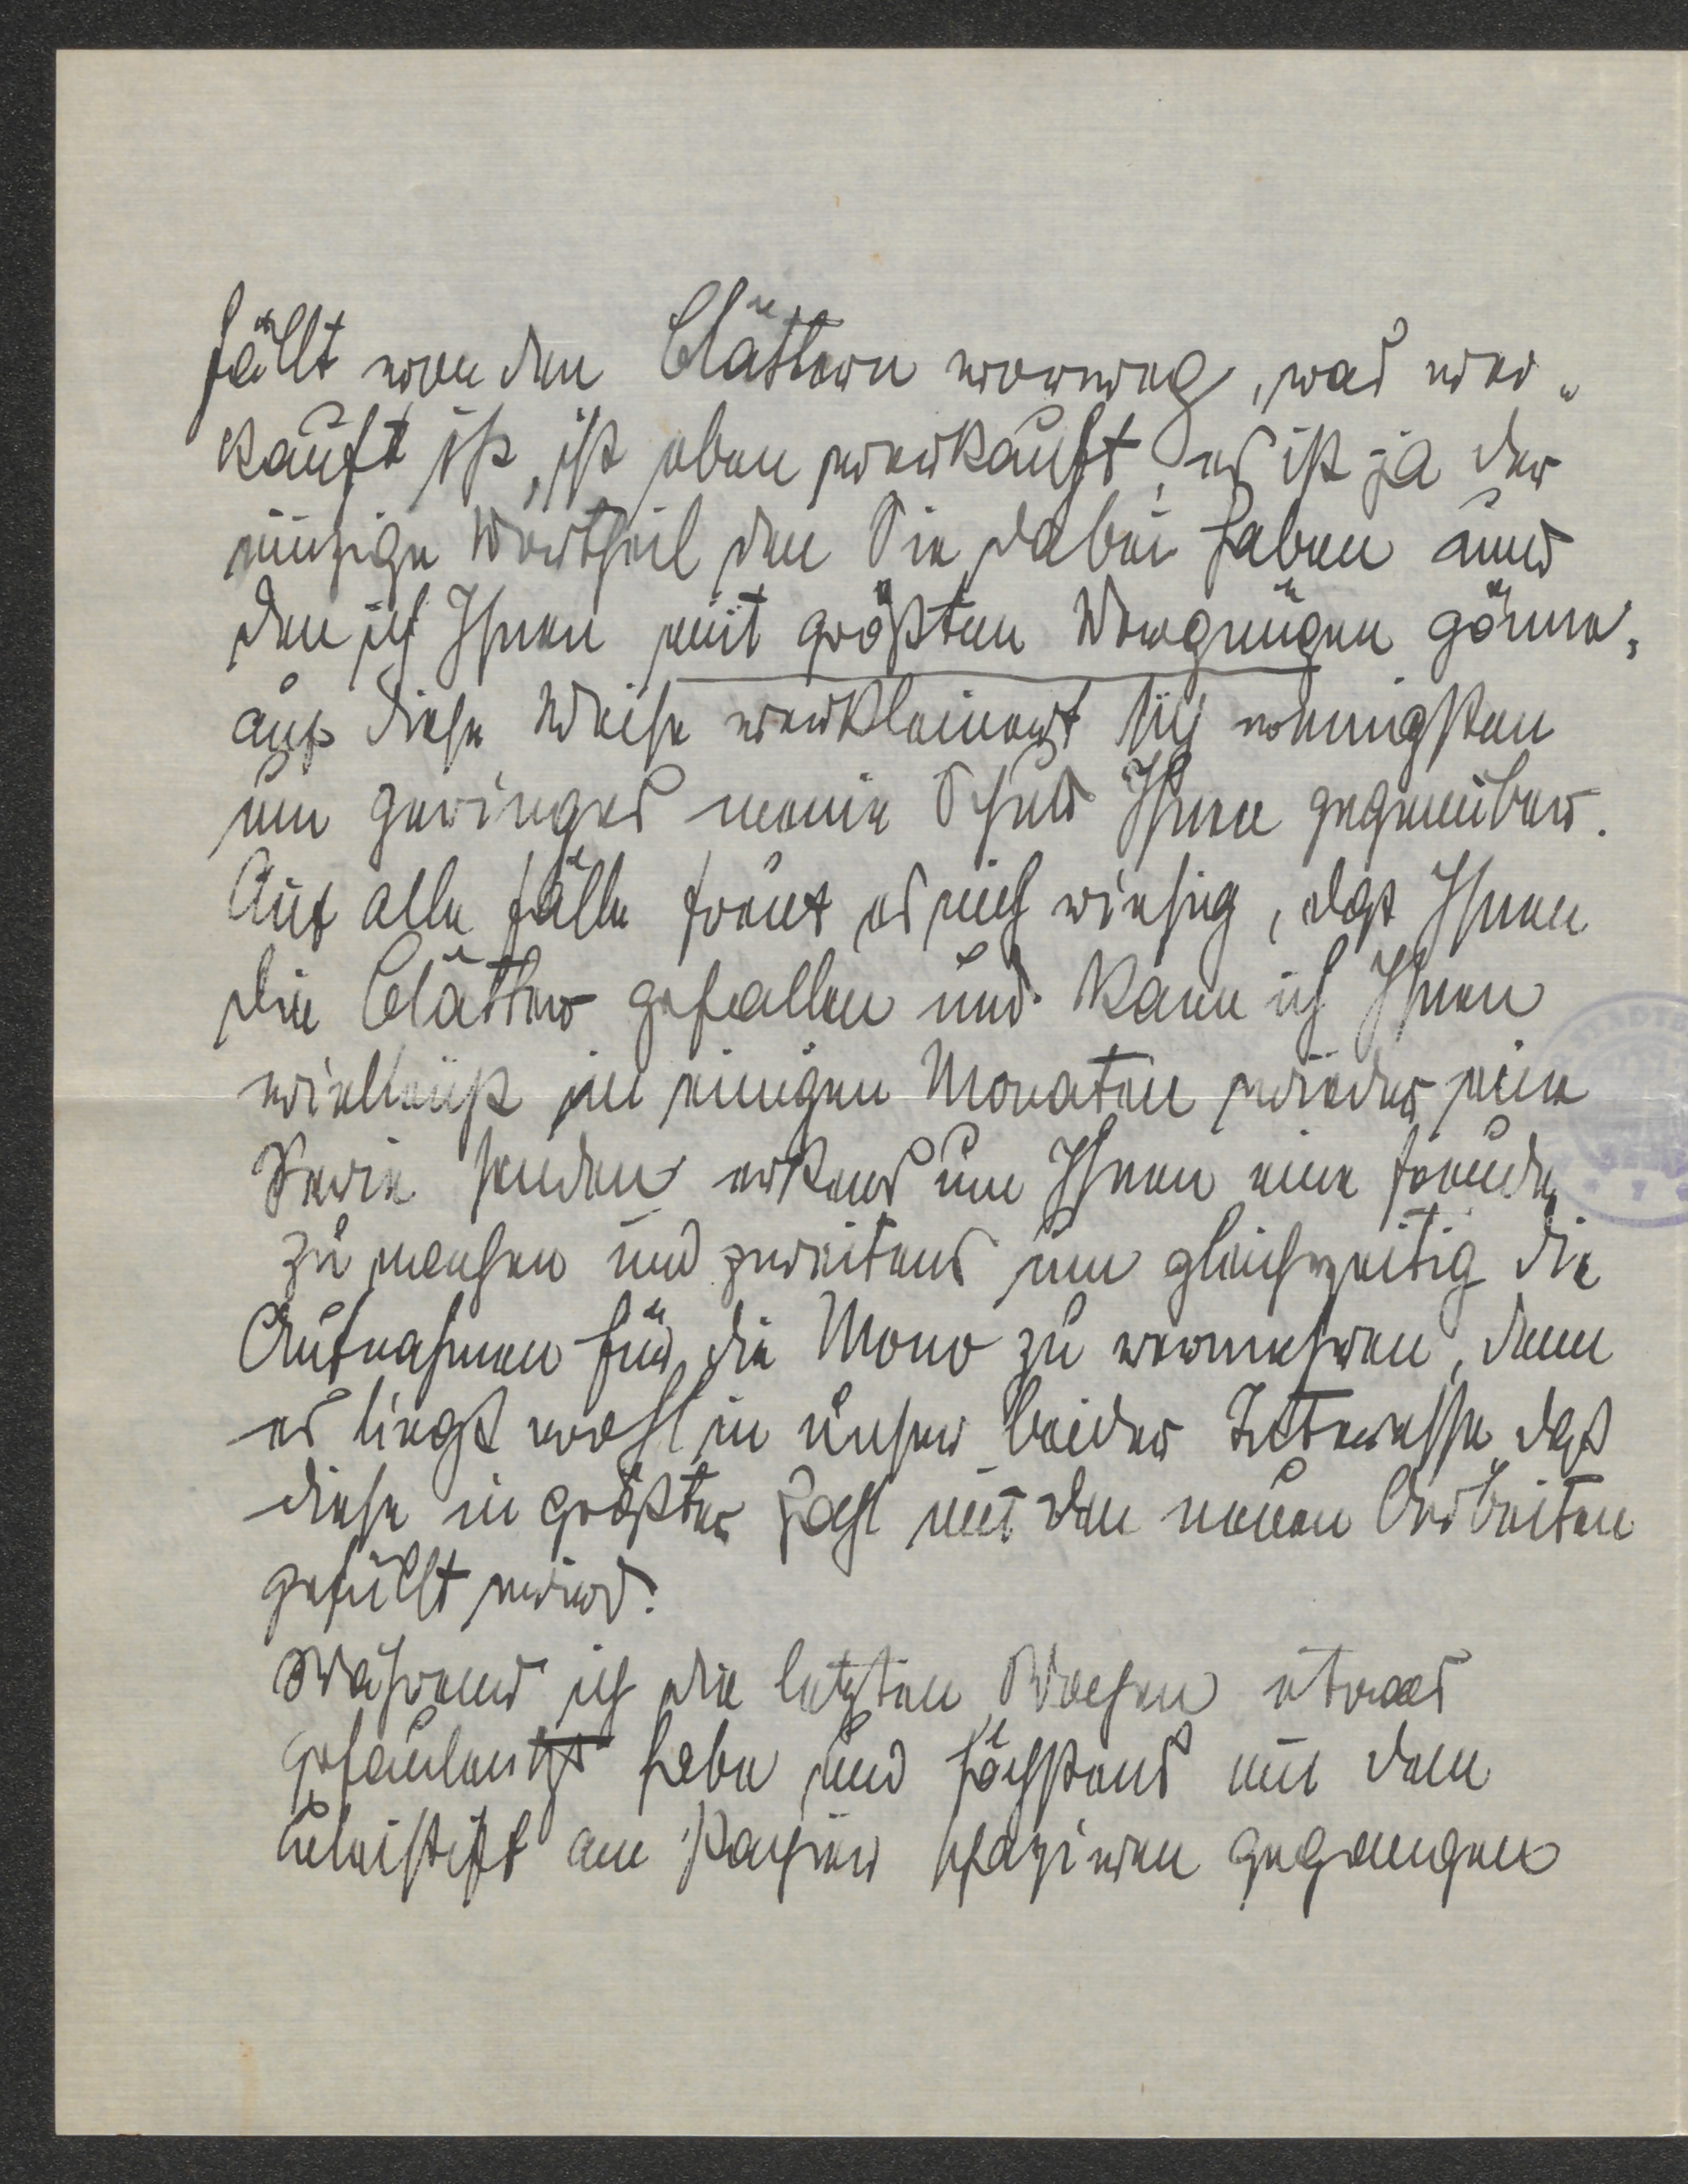 fällt von den Blättern vorweg, was ver-
kauft ist, ist eben verkauft, es ist ja der
einzige Vortheil den Sie dabei haben und
den ich Ihnen mit größten Vergnügen gönne,
auf diese Weise verkleinert sich wenigsten
um geringes meine Schuld Ihnen gegenüber.
Auf alle Fälle freut es mich riesig, daß Ihnen
die Blätter gefallen und kann ich Ihnen
vielleicht in einigen Monaten wieder eine
Serie senden erstens um Ihnen eine Freude
zu machen und zweitens um gleichzeitig die
Aufnahmen für die Mono zu vermehren, denn
es liegt wohl in unser beider Interesse daß
diese in größter Zahl mit den neuen Arbeiten
gefüllt wird.
Während ich die letzten Wochen etwas
gefaulenzt habe und höchstens mit dem
Bleistift am Papier spazieren gegangen